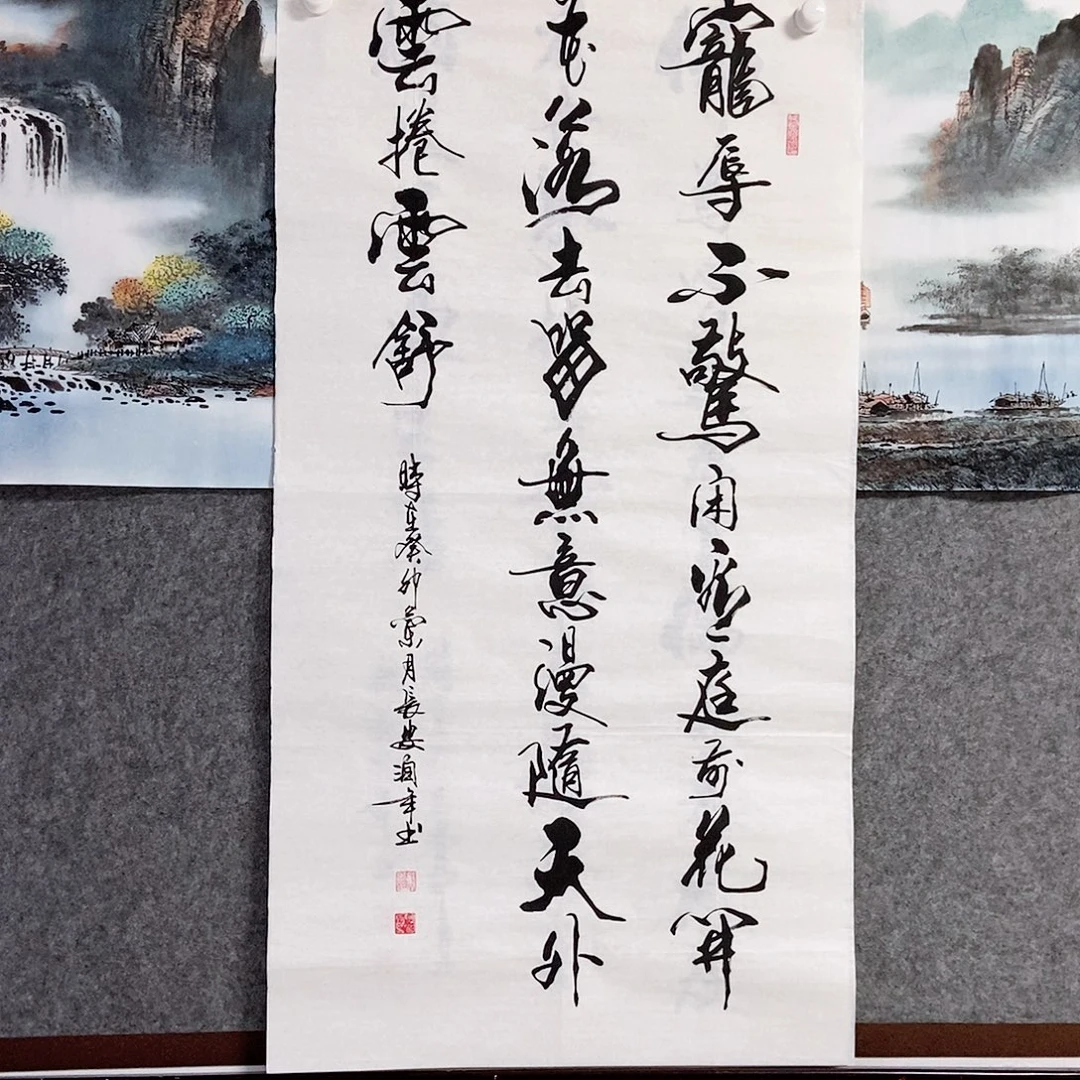 寵辱不驚閑看庭前花開
花落去留無意漫隨天外
雲捲雲舒
時在癸卯蘭月長安潤年書